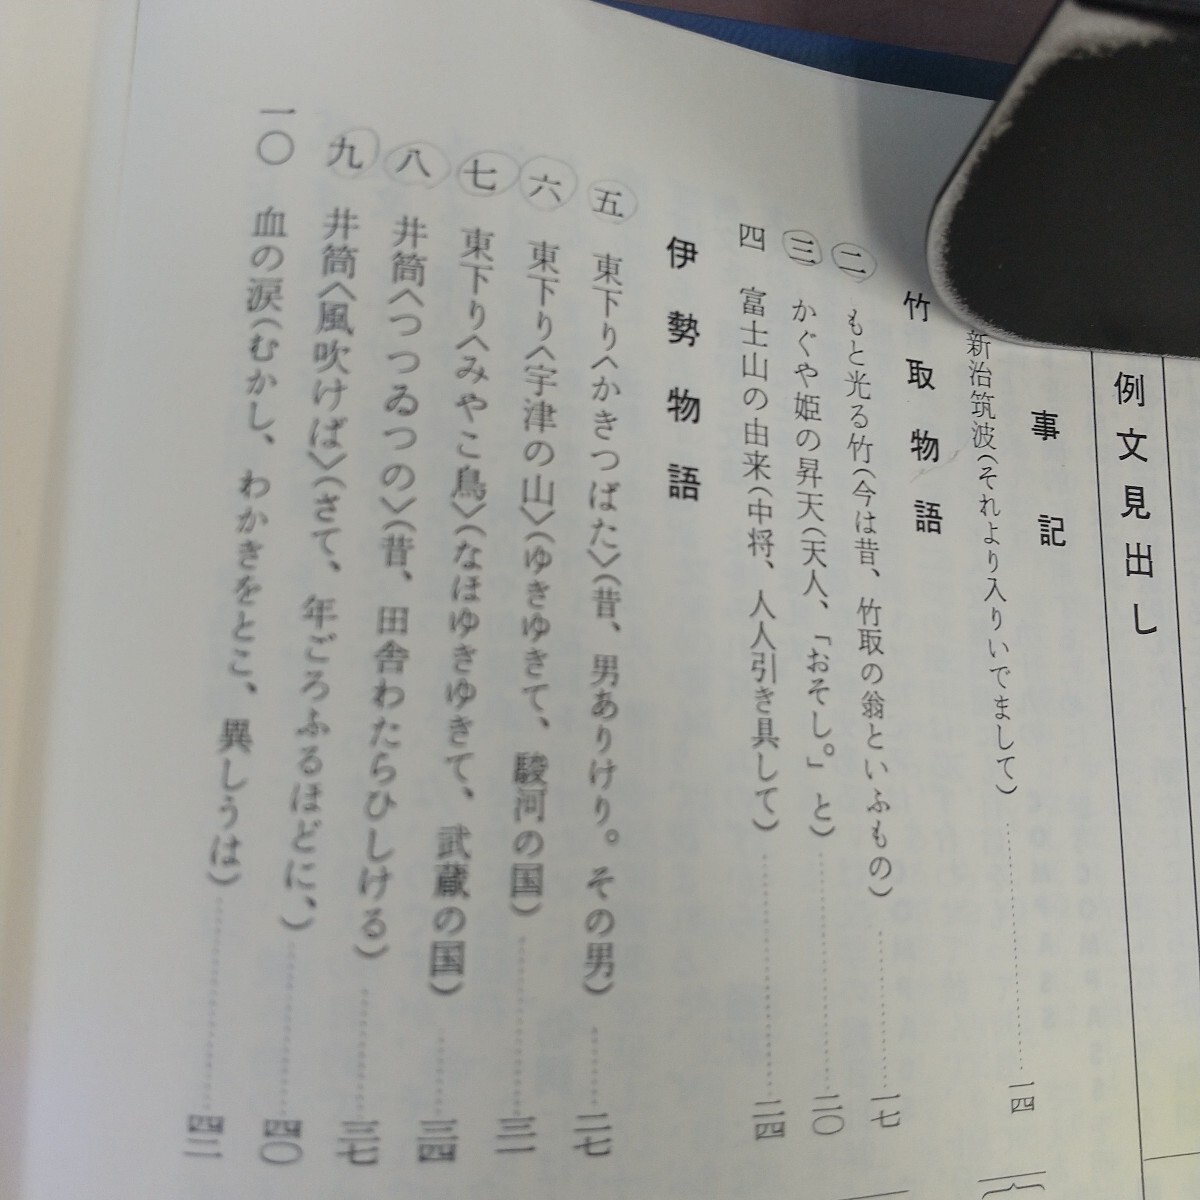 例文見出し
事記
新治筑波(それより入りいでまして)……一四
竹取物語
二 もと光る竹(今は昔、竹取の翁といふもの)……一七
三 かぐや姫の昇天(天人、「おそし。」と)……二〇
四 富士山の由来(中将、人人引き具して)……二四
伊勢物語
五 東下り〈かきつばた〉(昔、男ありけり。その男)……二七
六 東下り〈宇津の山〉(ゆきゆきて、駿河の国)……三一
七 東下り〈みやこ鳥〉(なほゆきゆきて、武蔵の国)……三四
八 井筒〈つつゐつの〉(昔、田舎わたらひしける)……三七
九 井筒〈風吹けば〉(さて、年ごろふるほどに、)……四〇
一〇 血の涙(むかし、わかきをとこ、異しうは)……四二